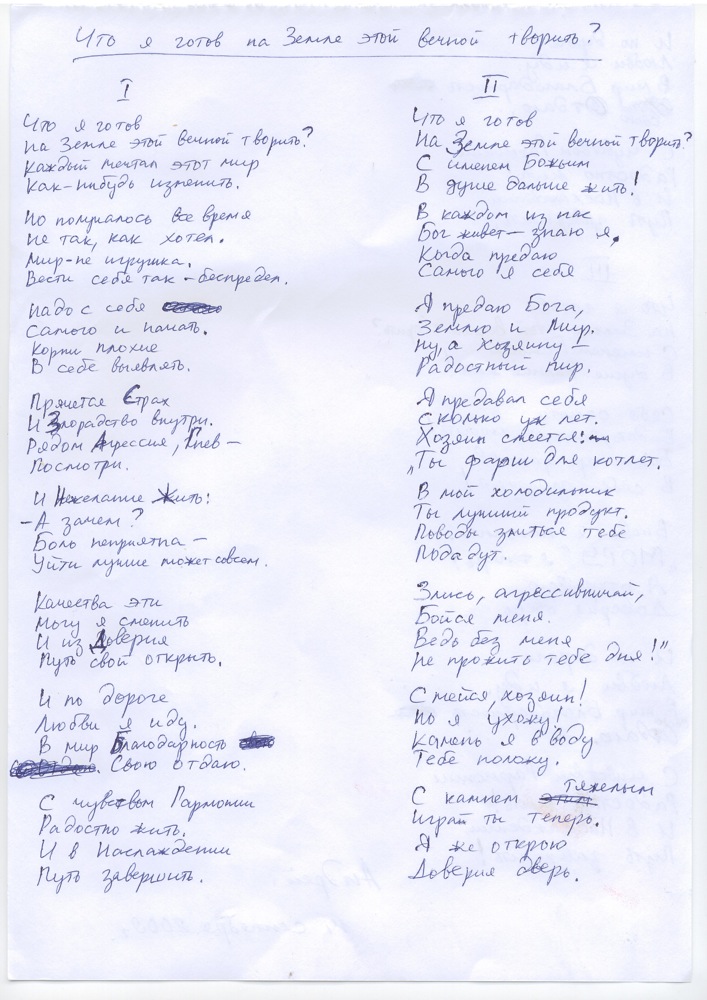 Что я готов на Земле этой вечной творить?
I
Что я готов
На Земле этой вечной творить?
Каждый мечтал этот мир
Как-нибудь изменить.
Но получалось все время
Не так, как хотел.
Мир-не игрушка.
Вести себя так - беспредел.
Надо с себя
Самого и начать.
Корни плохие
В себе выявлять.
Прячется Страх
И Злорадство внутри.
Рядом Агрессия, Гнев -
Посмотри.
И Нежелание Жить:
- А зачем?
Боль неприятна -
Уйти лучше может совсем.
Качества эти
Могу я сменить
И из Доверия
Путь свой открыть.
И по дороге
Любви я иду.
В мир Благодарность
Свою отдаю.
С чувством Гармонии
Радостно жить.
И в Наслаждении
Путь завершить.
II
Что я готов
На Земле этой вечной творить?
С именем Божьим
В душе дальше жить!
В каждом из нас
Бог живет - знаю я,
Когда предаю
Самого я себя
Я предаю Бога,
Землю и Мир.
Ну, а Хозяину -
Радостный пир.
Я предавал себя
Сколько уж лет.
Хозяин смеется:
„Ты фарш для котлет.
В мой холодильник
Ты лучший продукт.
Поводы злиться тебе
Подадут.
Злись, агрессивничай,
Бойся меня.
Ведь без меня
Не прожить тебе дня!"
Смейся, хозяин!
Но я ухожу!
Камень я в воду
Тебе положу.
С камнем тяжелым
Играй ты теперь.
Я же открою
Доверия дверь.